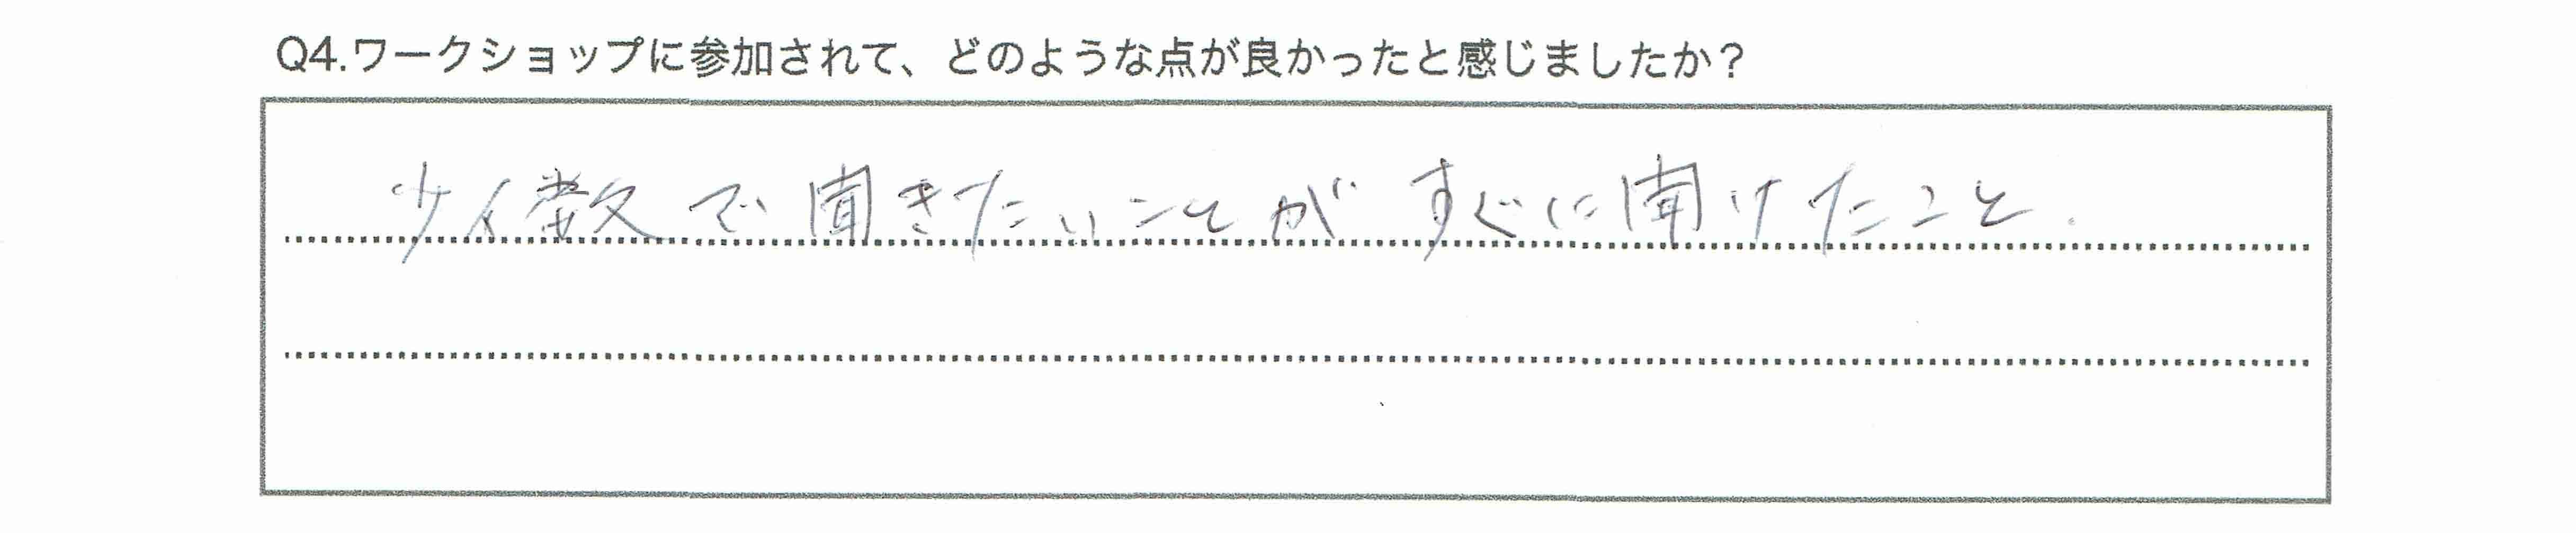 Q4.ワークショップに参加されて、どのような点が良かったと感じましたか？
少人数で聞きたいことがすぐに聞けたこと.